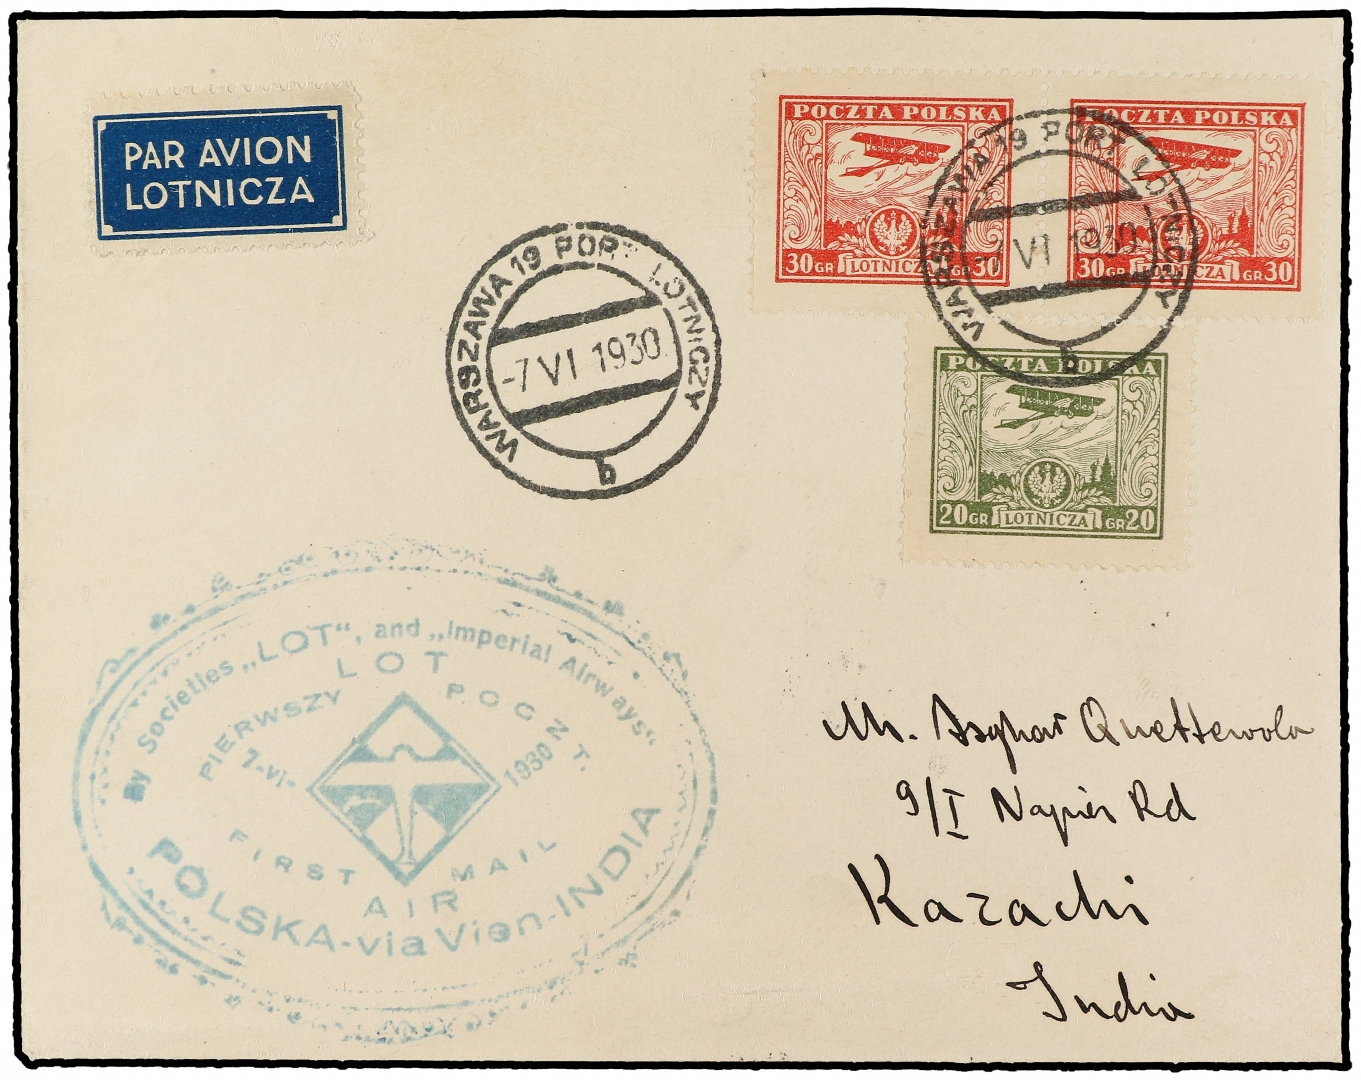 PAR AVION
LOTNICZA
POCZTA POLSKA
30 GR LOTNICZA GR 30
POCZTA POLSKA
30 GR LOTNICZA GR 30
WARSZAWA 19 PORT LOTNICZY
-7 VI 1930
b
WARSZAWA 19 PORT LOTNICZY
-7 VI 1930
b
POCZTA POLSKA
20 GR LOTNICZA GR 20
By Societies „LOT“, and „Imperial Airways“
LOT
PIERWSZY POCZT.
7-VI- 1930
FIRST MAIL
AIR
POLSKA-via Vien-INDIA
Mr. Asghar Quettewola
9/I Napier Rd
Karachi
India